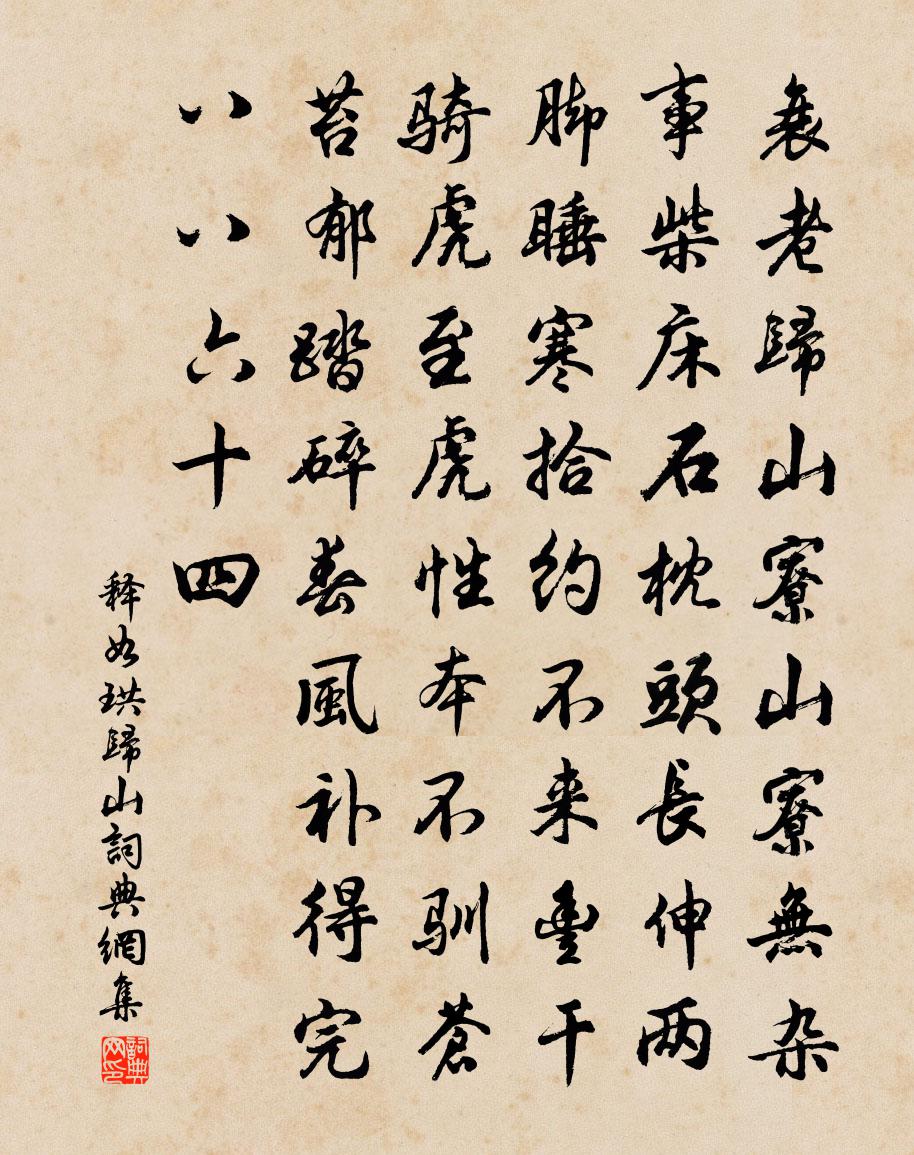 衰老歸山寮山寮無杂
事柴床石枕頭長伸两
脚睡寒拾约不来豊干
骑虎至虎性本不驯蒼
苔郁踏碎春風补得完
八八六十四
释如珙歸山詞典網集
詞典网印